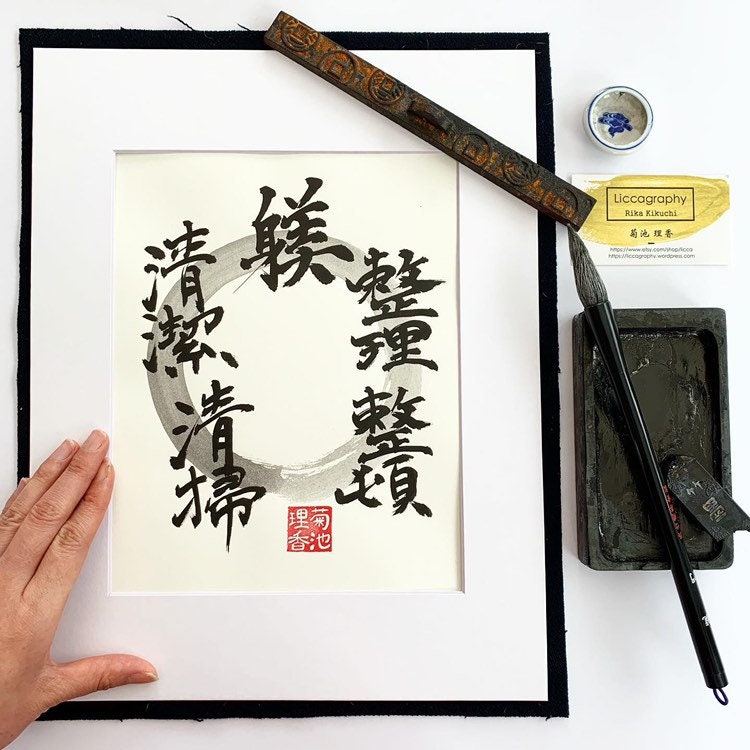 整理
整頓
清掃
清潔
躾
菊池
理香
Liccagraphy
Rika Kikuchi
菊池 理香
https://www.etsy.com/shop/licca
https://liccagraphy.wordpress.com